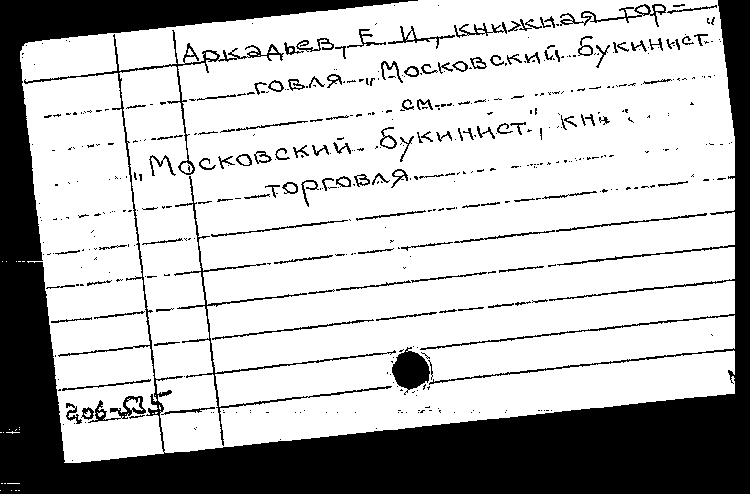 Аркадьев, Е. И., книжная тор-
говля „Московский букинист"
см.
„Московский букинист",
торговля.
206-535